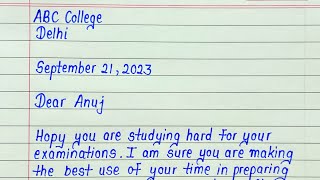 ABC College
Delhi
September 21, 2023
Dear Anuj
Hopy you are studying hard for your
examinations. I am sure you are making
the best use of your time in preparing